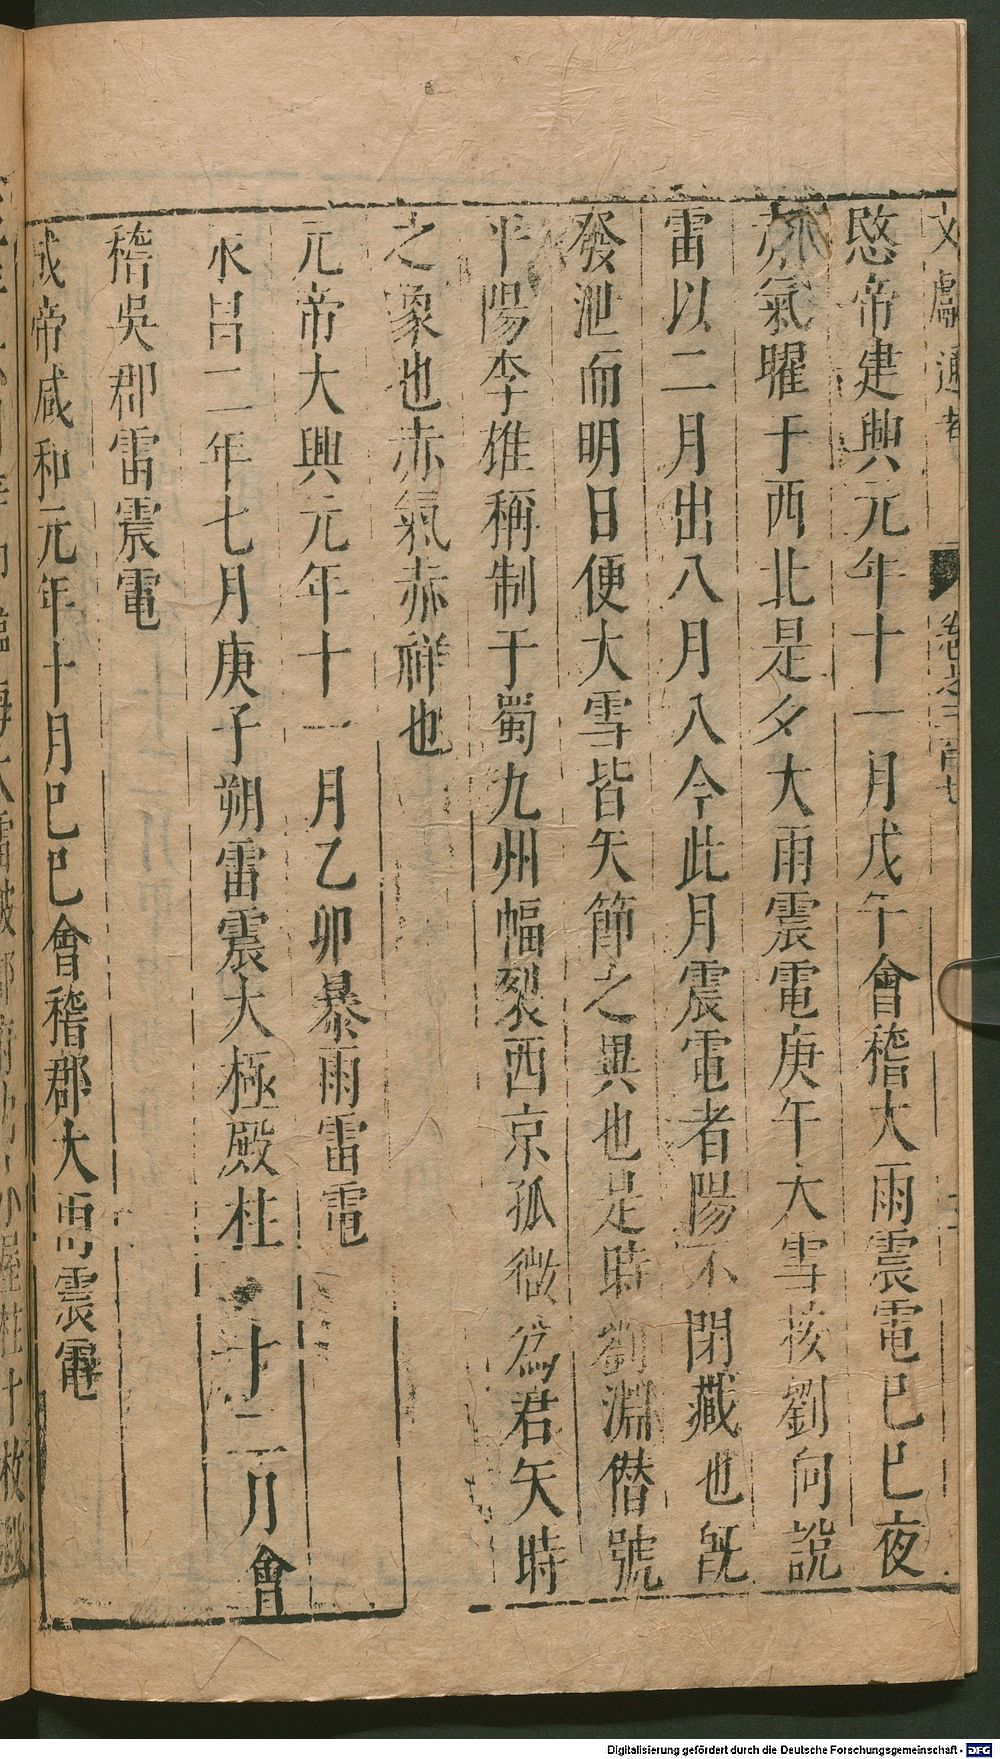 文獻通考 卷之三百七
愍帝建興元年十一月戊午會稽大雨震電巳巳夜
赤氣曜于西北是夕大雨震電庚午大雪按劉向說
雷以二月出八月入今此月震電者陽不閉藏也旣
發泄而明日便大雪皆失節之異也是時劉淵僭號
平陽李雄稱制于蜀九州幅裂西京孤微爲君失時
之象也赤氣赤祥也
元帝大興元年十一月乙卯暴雨雷電
永昌二年七月庚子朔雷震大極殿柱 十二月會
稽吳郡雷震電
成帝咸和元年十月巳巳會稽郡大雨震電
Digitalisierung gefördert durch die Deutsche Forschungsgemeinschaft - DFG